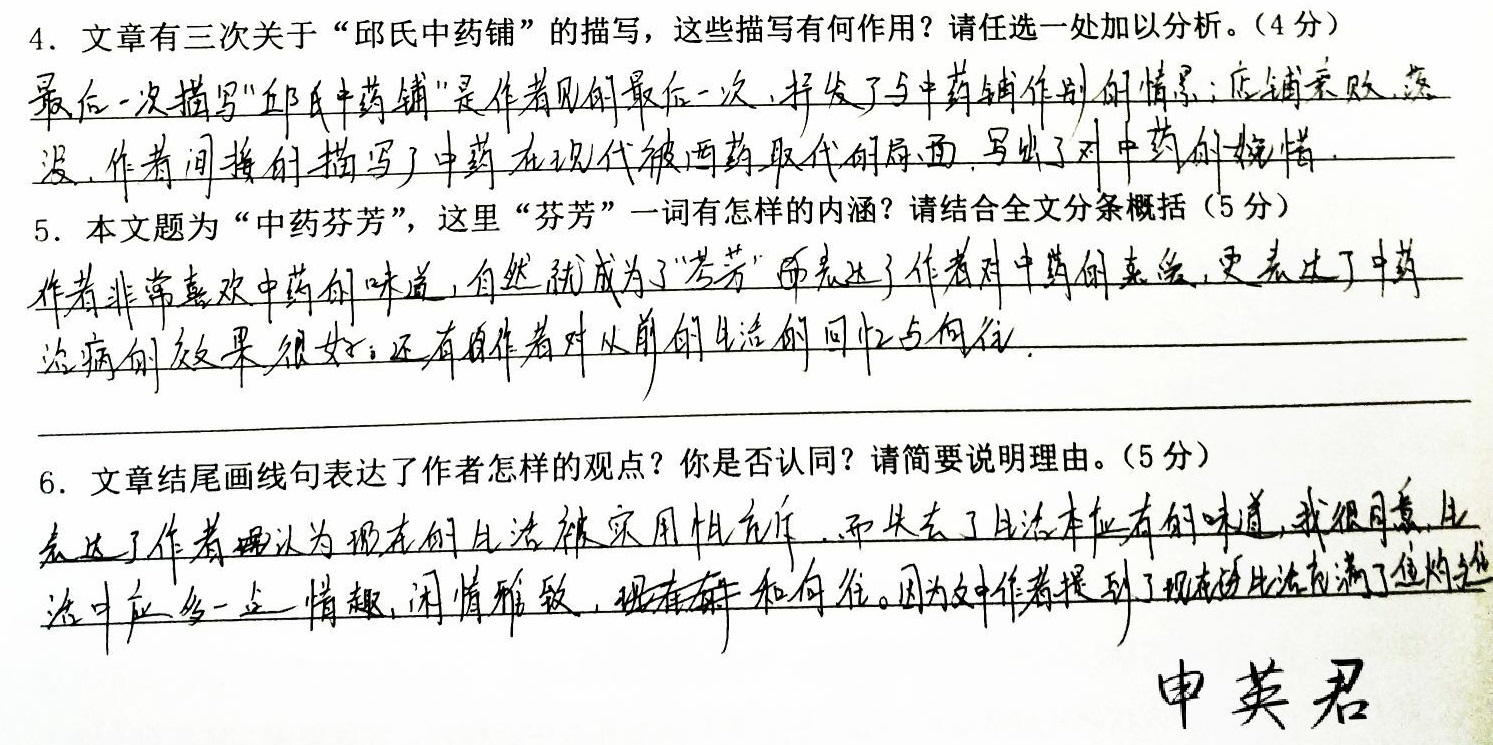 4. 文章有三次关于“邱氏中药铺”的描写，这些描写有何作用？请任选一处加以分析。（4 分）
最后一次描写“邱氏中药铺”是作者见的最后一次，抒发了与中药铺作别的情景；店铺衰败、落
没，作者间接的描写了中药在现代被西药取代的局面，写出了对中药的婉惜．
5. 本文题为“中药芬芳”，这里“芬芳”一词有怎样的内涵？请结合全文分条概括（5 分）
作者非常喜欢中药的味道，自然就成为了“芳芳”而表达了作者对中药的喜爱，更表达了中药
治病的效果很好；还有作者对从前的生活的回忆与向往．
6. 文章结尾画线句表达了作者怎样的观点？你是否认同？请简要说明理由。（5 分）
表达了作者认为现在的生活被实用性充斥，而失去了生活本应有的味道，我很同意，生
活中应多一些情趣，闲情雅致，和向往。因为文中作者提到了现在的生活充满了焦灼
申英君